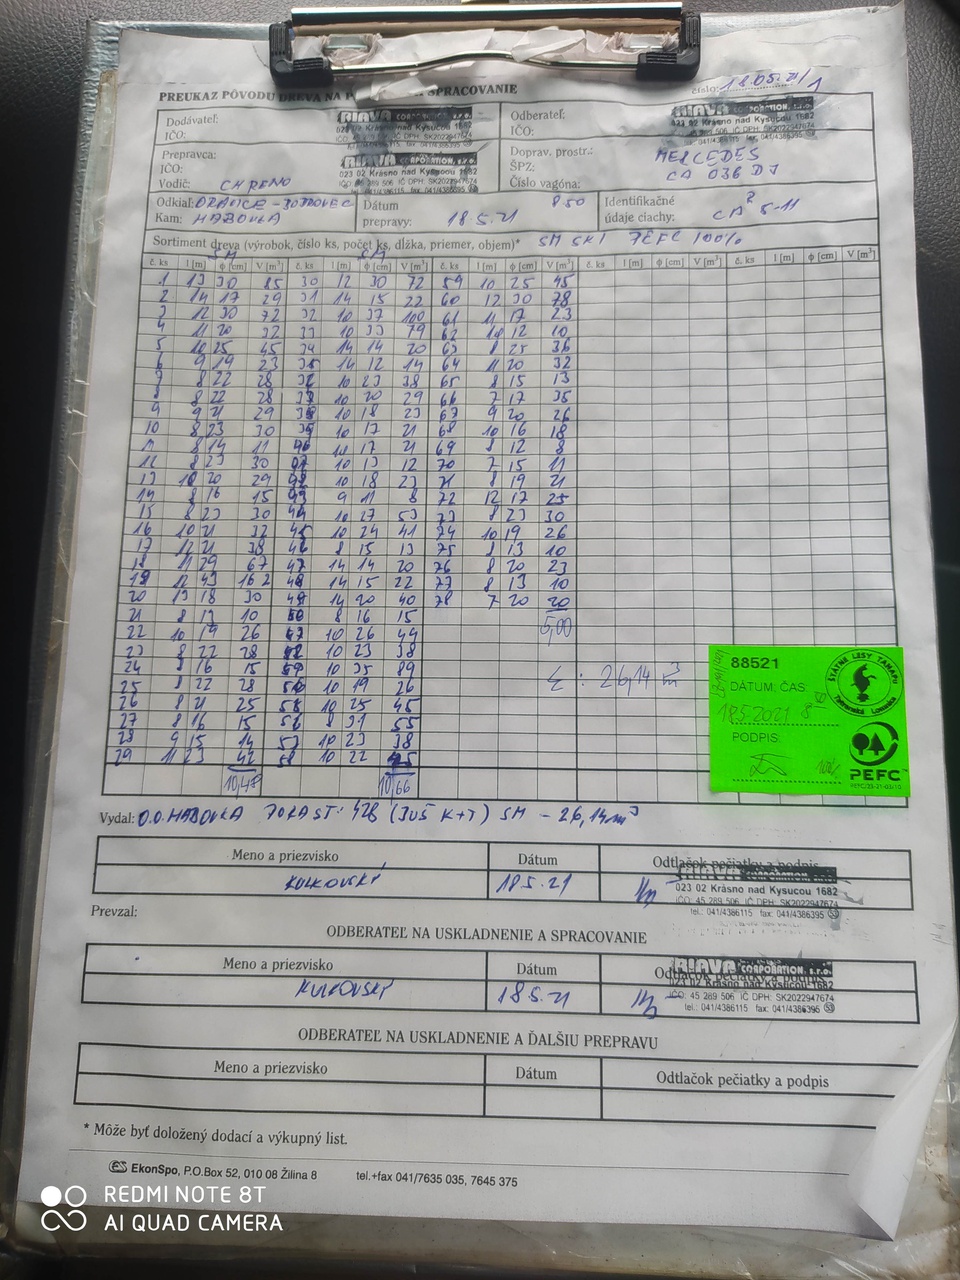 PREUKAZ PÔVODU DREVA NA P SPRACOVANIE
číslo: 18.05.21/1
Dodávateľ:
IČO:
RIAVA CORPORATION, s.r.o.
023 02 Krásno nad Kysucou 1682
Odberateľ:
IČO:
RIAVA CORPORATION, s.r.o.
023 02 Krásno nad Kysucou 1682
Prepravca:
IČO:
Vodič: CHRENO
RIAVA CORPORATION, s.r.o.
023 02 Krásno nad Kysucou 1682
Doprav. prostr.: MERCEDES
ŠPZ: CA 036 DJ
Číslo vagóna:
Odkiaľ:
Kam: HABOVKA
Dátum 8:50
prepravy: 18.5.21
Identifikačné
údaje ciachy:
Sortiment dreva (výrobok, číslo ks, počet ks, dĺžka, priemer, objem)* PEFC 100%
SM SM
č. ks l [m] φ [cm] V [m³] č. ks l [m] φ [cm] V [m³] č. ks l [m] φ [cm] V [m³] č. ks l [m] φ [cm] V [m³] č. ks l [m] φ [cm] V [m³]
1 13 30 85 30 12 30 72 59 10 25 45
2 14 17 29 31 14 15 22 60 12 30 78
3 12 30 72 32 10 37 100 61 11 17 23
4 11 20 32 33 10 33 79 62 10 12 10
5 10 25 45 34 14 14 20 63 8 25 36
6 9 19 23 35 14 12 14 64 11 20 32
7 8 22 28 10 23 38 65 8 15 13
8 8 22 28 10 20 29 66 7 17 35
9 9 21 29 10 18 23 67 9 20 26
10 8 23 30 10 17 21 68 10 16 18
11 8 14 11 10 17 21 69 8 12 8
12 8 23 30 10 13 12 70 7 15 11
13 10 20 29 10 18 23 71 8 19 21
14 8 16 15 9 11 8 72 12 17 25
15 8 23 30 10 27 53 73 8 23 30
16 10 21 32 45 10 24 41 74 10 19 26
17 12 21 38 46 8 15 13 75 8 13 10
18 11 29 67 47 14 14 20 76 8 20 23
19 12 43 162 48 14 15 22 77 8 13 10
20 13 18 30 49 14 20 40 78 7 20 20
21 8 13 10 8 16 15 5,00
22 10 19 26 10 26 49
23 8 22 28 10 23 38
24 8 16 15 10 35 89 Σ : 26,14 m³
25 8 22 28 10 19 26
26 8 21 25 55 10 25 45
27 8 16 15 56 8 31 55
28 9 15 14 57 10 23 38
29 11 23 42 58 10 22 35
10,48 10,66
88521
DÁTUM, ČAS:
18.5.2021
PODPIS:
ŠTÁTNE LESY TANAPU
Tatranská Lomnica
PEFC
Vydal: O.O. HABOVKA PORAST: 428 SM - 26,14m³
Meno a priezvisko Dátum Odtlačok pečiatky a podpis
KULKOVSKÝ 18.5.21
RIAVA CORPORATION, s.r.o.
023 02 Krásno nad Kysucou 1682
IČO: 45 289 506 IČ DPH: SK2022947674
tel.: 041/4386115 fax: 041/4386395
Prevzal:
ODBERATEĽ NA USKLADNENIE A SPRACOVANIE
Meno a priezvisko Dátum Odtlačok pečiatky a podpis
KULKOVSKÝ 18.5.21
RIAVA CORPORATION, s.r.o.
023 02 Krásno nad Kysucou 1682
IČO: 45 289 506 IČ DPH: SK2022947674
tel.: 041/4386115 fax: 041/4386395
ODBERATEĽ NA USKLADNENIE A ĎALŠIU PREPRAVU
Meno a priezvisko Dátum Odtlačok pečiatky a podpis
* Môže byť doložený dodací a výkupný list.
EkonSpo, P.O.Box 52, 010 08 Žilina 8 tel.+fax 041/7635 035, 7645 375
REDMI NOTE 8T
AI QUAD CAMERA